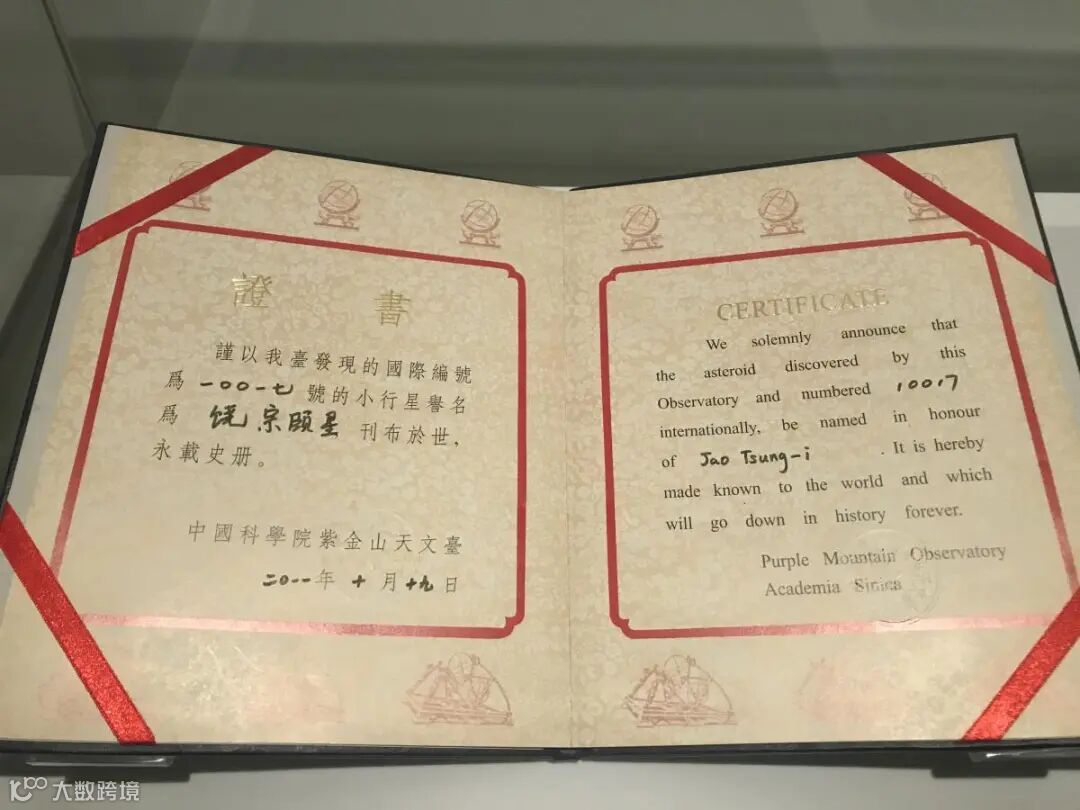 證書
謹以我臺發現的國際編號
爲一〇〇一七號的小行星譽名
爲饶宗頤星刊布於世,
永載史册。
中國科學院紫金山天文臺
二〇一一年十月十九日
CERTIFICATE
We solemnly announce that
the asteroid discovered by this
Observatory and numbered 10017
internationally, be named in honour
of Jao Tsung-i. It is hereby
made known to the world and which
will go down in history forever.
Purple Mountain Observatory
Academia Sinica
大数跨境